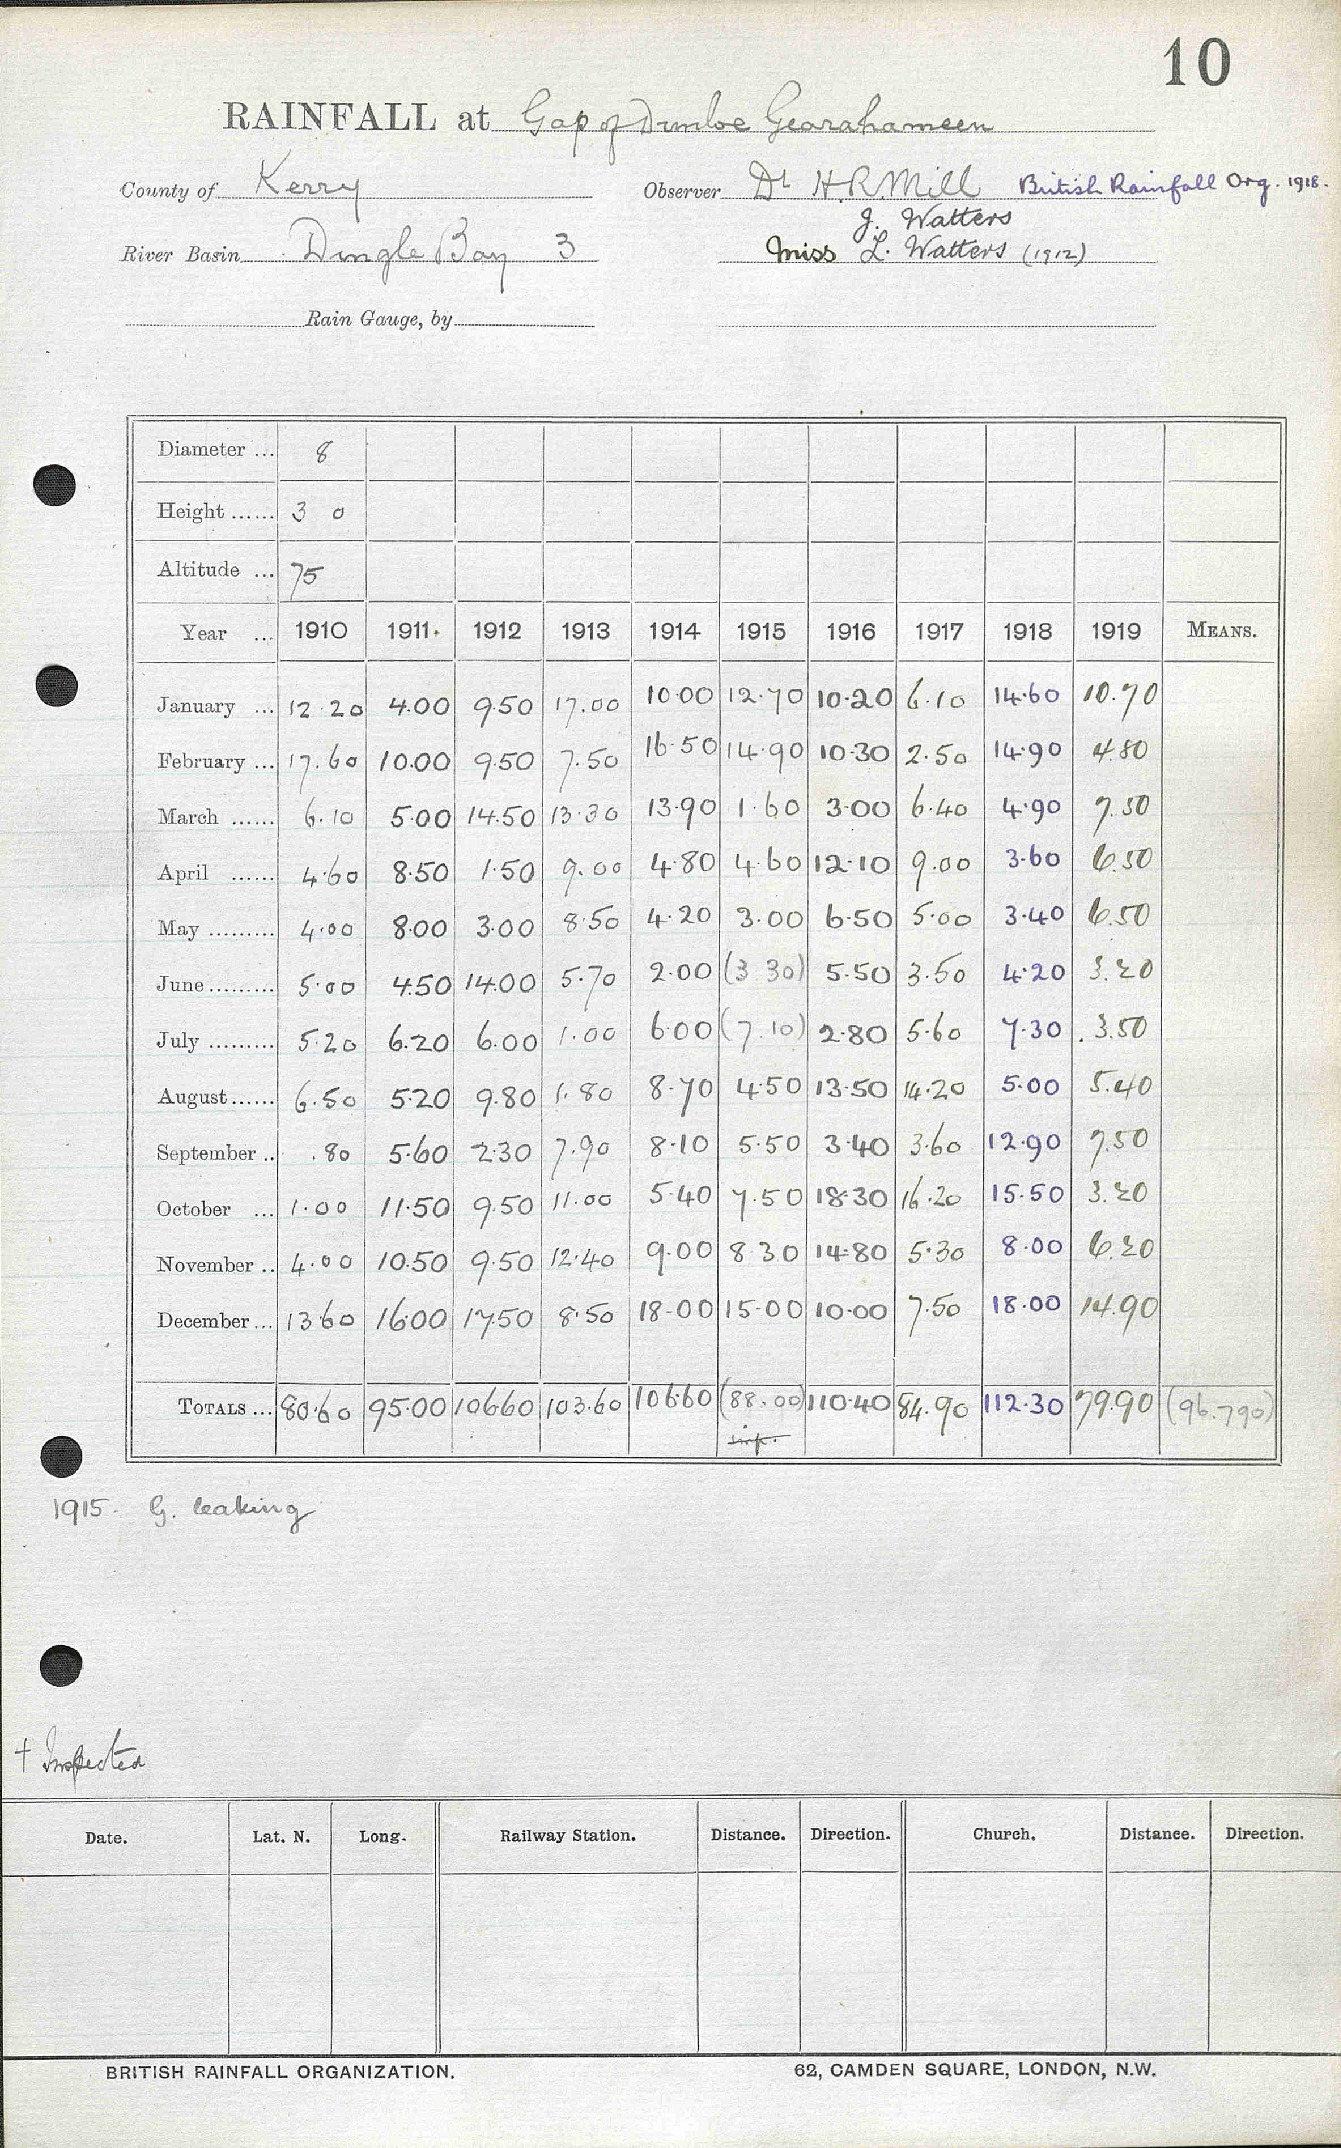 10
RAINFALL at Gap of Dunloe Gearahameen
County of Kerry Observer Dr H.R. Mill British Rainfall Org. 1918.
J. Watters
River Basin Dingle Bay 3 Miss L. Watters (1912)
Rain Gauge, by
Diameter ... 8
Height ...... 3 0
Altitude ... 75
Year ... 1910 1911 1912 1913 1914 1915 1916 1917 1918 1919 MEANS.
January ... 12.20 4.00 9.50 17.00 10.00 12.70 10.20 6.10 14.60 10.70
February ... 17.60 10.00 9.50 7.50 16.50 14.90 10.30 2.50 14.90 4.80
March ...... 6.10 5.00 14.50 13.30 13.90 1.60 3.00 6.40 4.90 7.50
April ...... 4.60 8.50 1.50 9.00 4.80 4.60 12.10 9.00 3.60 6.50
May ......... 4.00 8.00 3.00 8.50 4.20 3.00 6.50 5.00 3.40 6.50
June ......... 5.00 4.50 14.00 5.70 2.00 (3.30) 5.50 3.50 4.20 3.20
July ......... 5.20 6.20 6.00 1.00 6.00 (7.10) 2.80 5.60 7.30 3.50
August ...... 6.50 5.20 9.80 1.80 8.70 4.50 13.50 14.20 5.00 5.40
September .. .80 5.60 2.30 7.90 8.10 5.50 3.40 3.60 12.90 7.50
October ... 1.00 11.50 9.50 11.00 5.40 7.50 18.30 16.20 15.50 3.20
November .. 4.00 10.50 9.50 12.40 9.00 8.30 14.80 5.30 8.00 6.20
December ... 13.60 16.00 17.50 8.50 18.00 15.00 10.00 7.50 18.00 14.90
TOTALS ... 80.60 95.00 106.60 103.60 106.60 (88.00) 110.40 84.90 112.30 79.90 (96.790)
imp.
1915. G. leaking
† Inspected
Date. Lat. N. Long. Railway Station. Distance. Direction. Church. Distance. Direction.
BRITISH RAINFALL ORGANIZATION. 62, CAMDEN SQUARE, LONDON, N.W.